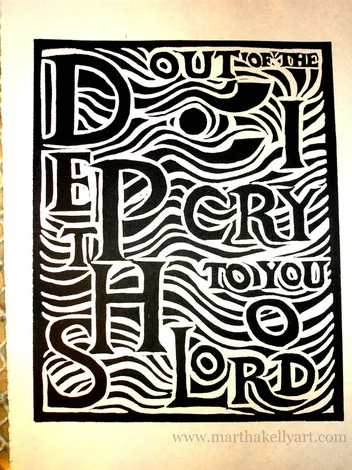 OUT OF THE
DEPTHS
I
CRY
TO YOU
O
LORD
www.marthakellyart.com